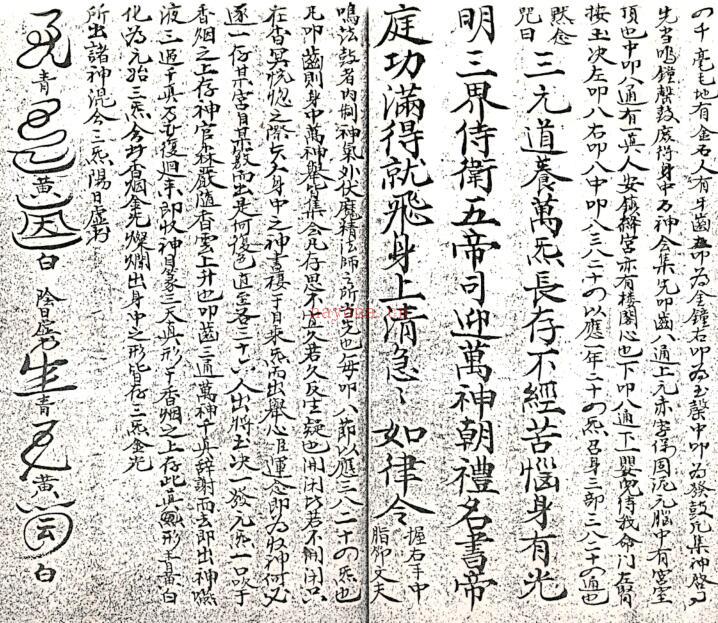 の千毫毛地有金石人有牙齒左叩為金鐘右叩為玉磬中叩為發鼓凡集神發
先當鳴鐘磬鼓廣得身中万神令集先叩齒八通上元赤宮保固泥元腦中有宮室
頂也中叩八通有一真人安鎮絳宮亦有楼閣心也下叩八通下一嬰兒侍我命門左腎
按玉次左叩八右叩八中叩八三八二十の以應一年二十の炁召身三部三八二十の通也
默念咒曰 三元道養萬炁長存不經苦惱身有光
明三界侍衛五帝司迎萬神朝禮名書帝
庭功滿得就飛身上清急〻如律令 握右手中指仰文天
鳴法鼓者內制神氣外伏魔精法師之所當先也每叩八節以應三八二十の炁也
凡叩齒則身中萬神舉皆集會凡存思不宜久若久反生疑也用閉以若不用閉只
在杳冥恍惚之際矣人身中之神盡棲于目來炁而出舉心運念即為收神何必
逐一存某宮自某数而出是何復色直至各三十六人出將玉决一發元炁一口吹于
香烟之上存神官森嚴隨香雲上升也叩齒三通萬神千真辭謝而去即出神嚥
液三過千真万聖復迴即收神目篆三天真形于香烟之上存此真形青黃白
化為元始三炁合於香烟金光燦爛出身中之形皆存三炁金光
所出諸神混合三炁陽日虛書
青 黃 白 陰日虛書 青 黃 白